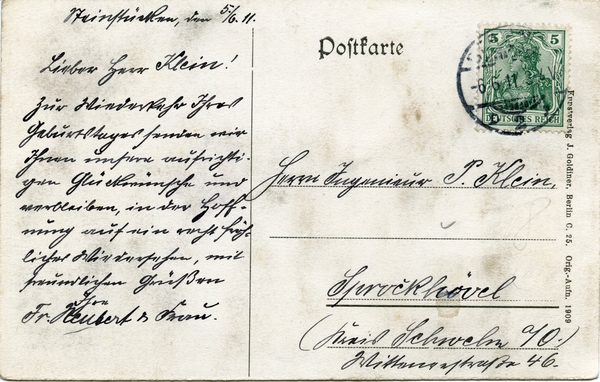 Steinstücken, den 5/6. 11.
Lieber Herr Klein!
Zur Wiederkehr Ihres
Geburtstages senden wir
Ihnen unsere aufrichti-
gen Glückwünsche und
verbleiben, in der Hoff-
nung auf ein recht fröh-
liches Wiedersehen, mit
freundlichen Grüßen
Ihre
Fr. & Frau.
Postkarte
5 5
DEUTSCHES REICH
-6.6.11
Herrn Ingenieur P. Klein,
Sprockhövel
(Kreis Schwelm
Wittenerstraße 46.
Kunstverlag J. Goldiner, Berlin C. 25. Orig.-Aufn. 1909